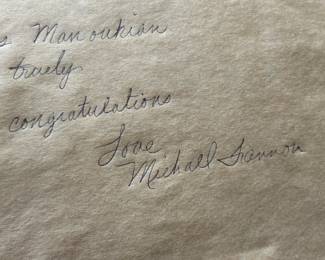 s Manoukian
truely
congratulations
Love
Michael Gannon